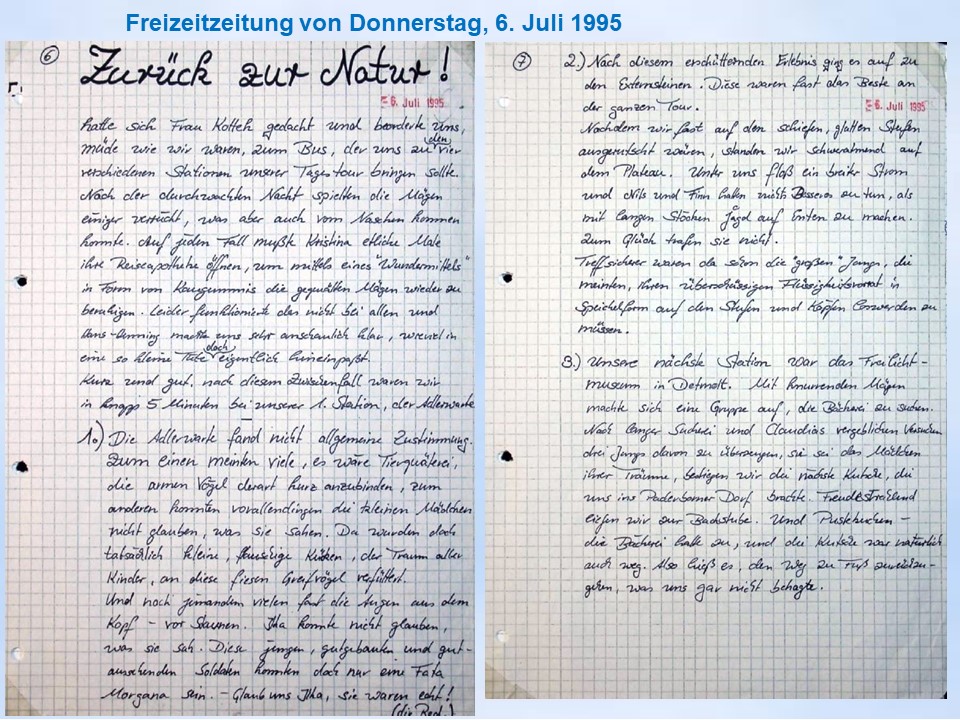 Freizeitzeitung von Donnerstag, 6. Juli 1995
6
Zurück zur Natur!
6. Juli 1995
hatte sich Frau Kotteh gedacht und beorderte uns,
müde wie wir waren, zum Bus, der uns zu den vier
verschiedenen Stationen unserer Tagestour bringen sollte.
Nach der durchwachten Nacht spielten die Mägen
einiger verrückt, was aber auch vom Naschen kommen
konnte. Auf jeden Fall mußte Kristina etliche Male
ihre Reiseapotheke öffnen, um mittels eines "Wundermittels"
in Form von Kaugummis die gequälten Mägen wieder zu
beruhigen. Leider funktionierte das nicht bei allen und
Hans-Henning machte uns sehr anschaulich klar, wieviel in
eine so kleine Tüte doch eigentlich hineinpaßt.
Kurz und gut, nach diesem Zwischenfall waren wir
in knapp 5 Minuten bei unserer 1. Station, der Adlerwarte
1.) Die Adlerwarte fand nicht allgemeine Zustimmung.
Zum einen meinten viele, es wäre Tierquälerei,
die armen Vögel derart kurz anzubinden, zum
anderen konnten vorallendingen die kleinen Mädchen
nicht glauben, was sie sahen. Da wurden doch
tatsächlich kleine, flauschige Küken, der Traum aller
Kinder, an diese fiesen Greifvögel verfüttert.
Und noch jemandem vielen fast die Augen aus dem
Kopf - vor Staunen. Ilka konnte nicht glauben,
was sie sah. Diese jungen, gutgebauten und gut-
aussehenden Soldaten konnten doch nur eine Fata
Morgana sein. - Glaub uns Ilka, sie waren echt!
(die Red.)
7
2.) Nach diesem erschütternden Erlebnis ging es auf zu
den Externsteinen. Diese waren fast das Beste an
der ganzen Tour.
6. Juli 1995
Nachdem wir fast auf den schiefen, glatten Stufen
ausgerutscht wären, standen wir schweratmend auf
dem Plateau. Unter uns floß ein breiter Strom
und Nils und Finn hatten nichts Besseres zu tun, als
mit langen Stöcken Jagd auf Enten zu machen.
Zum Glück trafen sie nicht.
Treffsicherer waren da schon die "großen" Jungs, die
meinten, ihren überschüssigen Flüssigkeitsvorrat in
Speichelform auf den Stufen und Köpfen loswerden zu
müssen.
3.) Unsere nächste Station war das Freilicht-
museum in Detmolt. Mit knurrenden Mägen
machte sich eine Gruppe auf, die Bäckerei zu suchen.
Nach langer Sucherei und Claudias vergeblichen Versuchen
drei Jungs davon zu überzeugen, sie sei das Mädchen
ihrer Träume, bestiegen wir die nächste Kutsche, die
uns ins Paderborner Dorf brachte. Freudestrahlend
liefen wir zur Backstube. Und Pustekuchen -
die Bäckerei hatte zu, und die Kutsche war natürlich
auch weg. Also hieß es, den Weg zu Fuß zurückzu-
gehen, was uns gar nicht behagte.